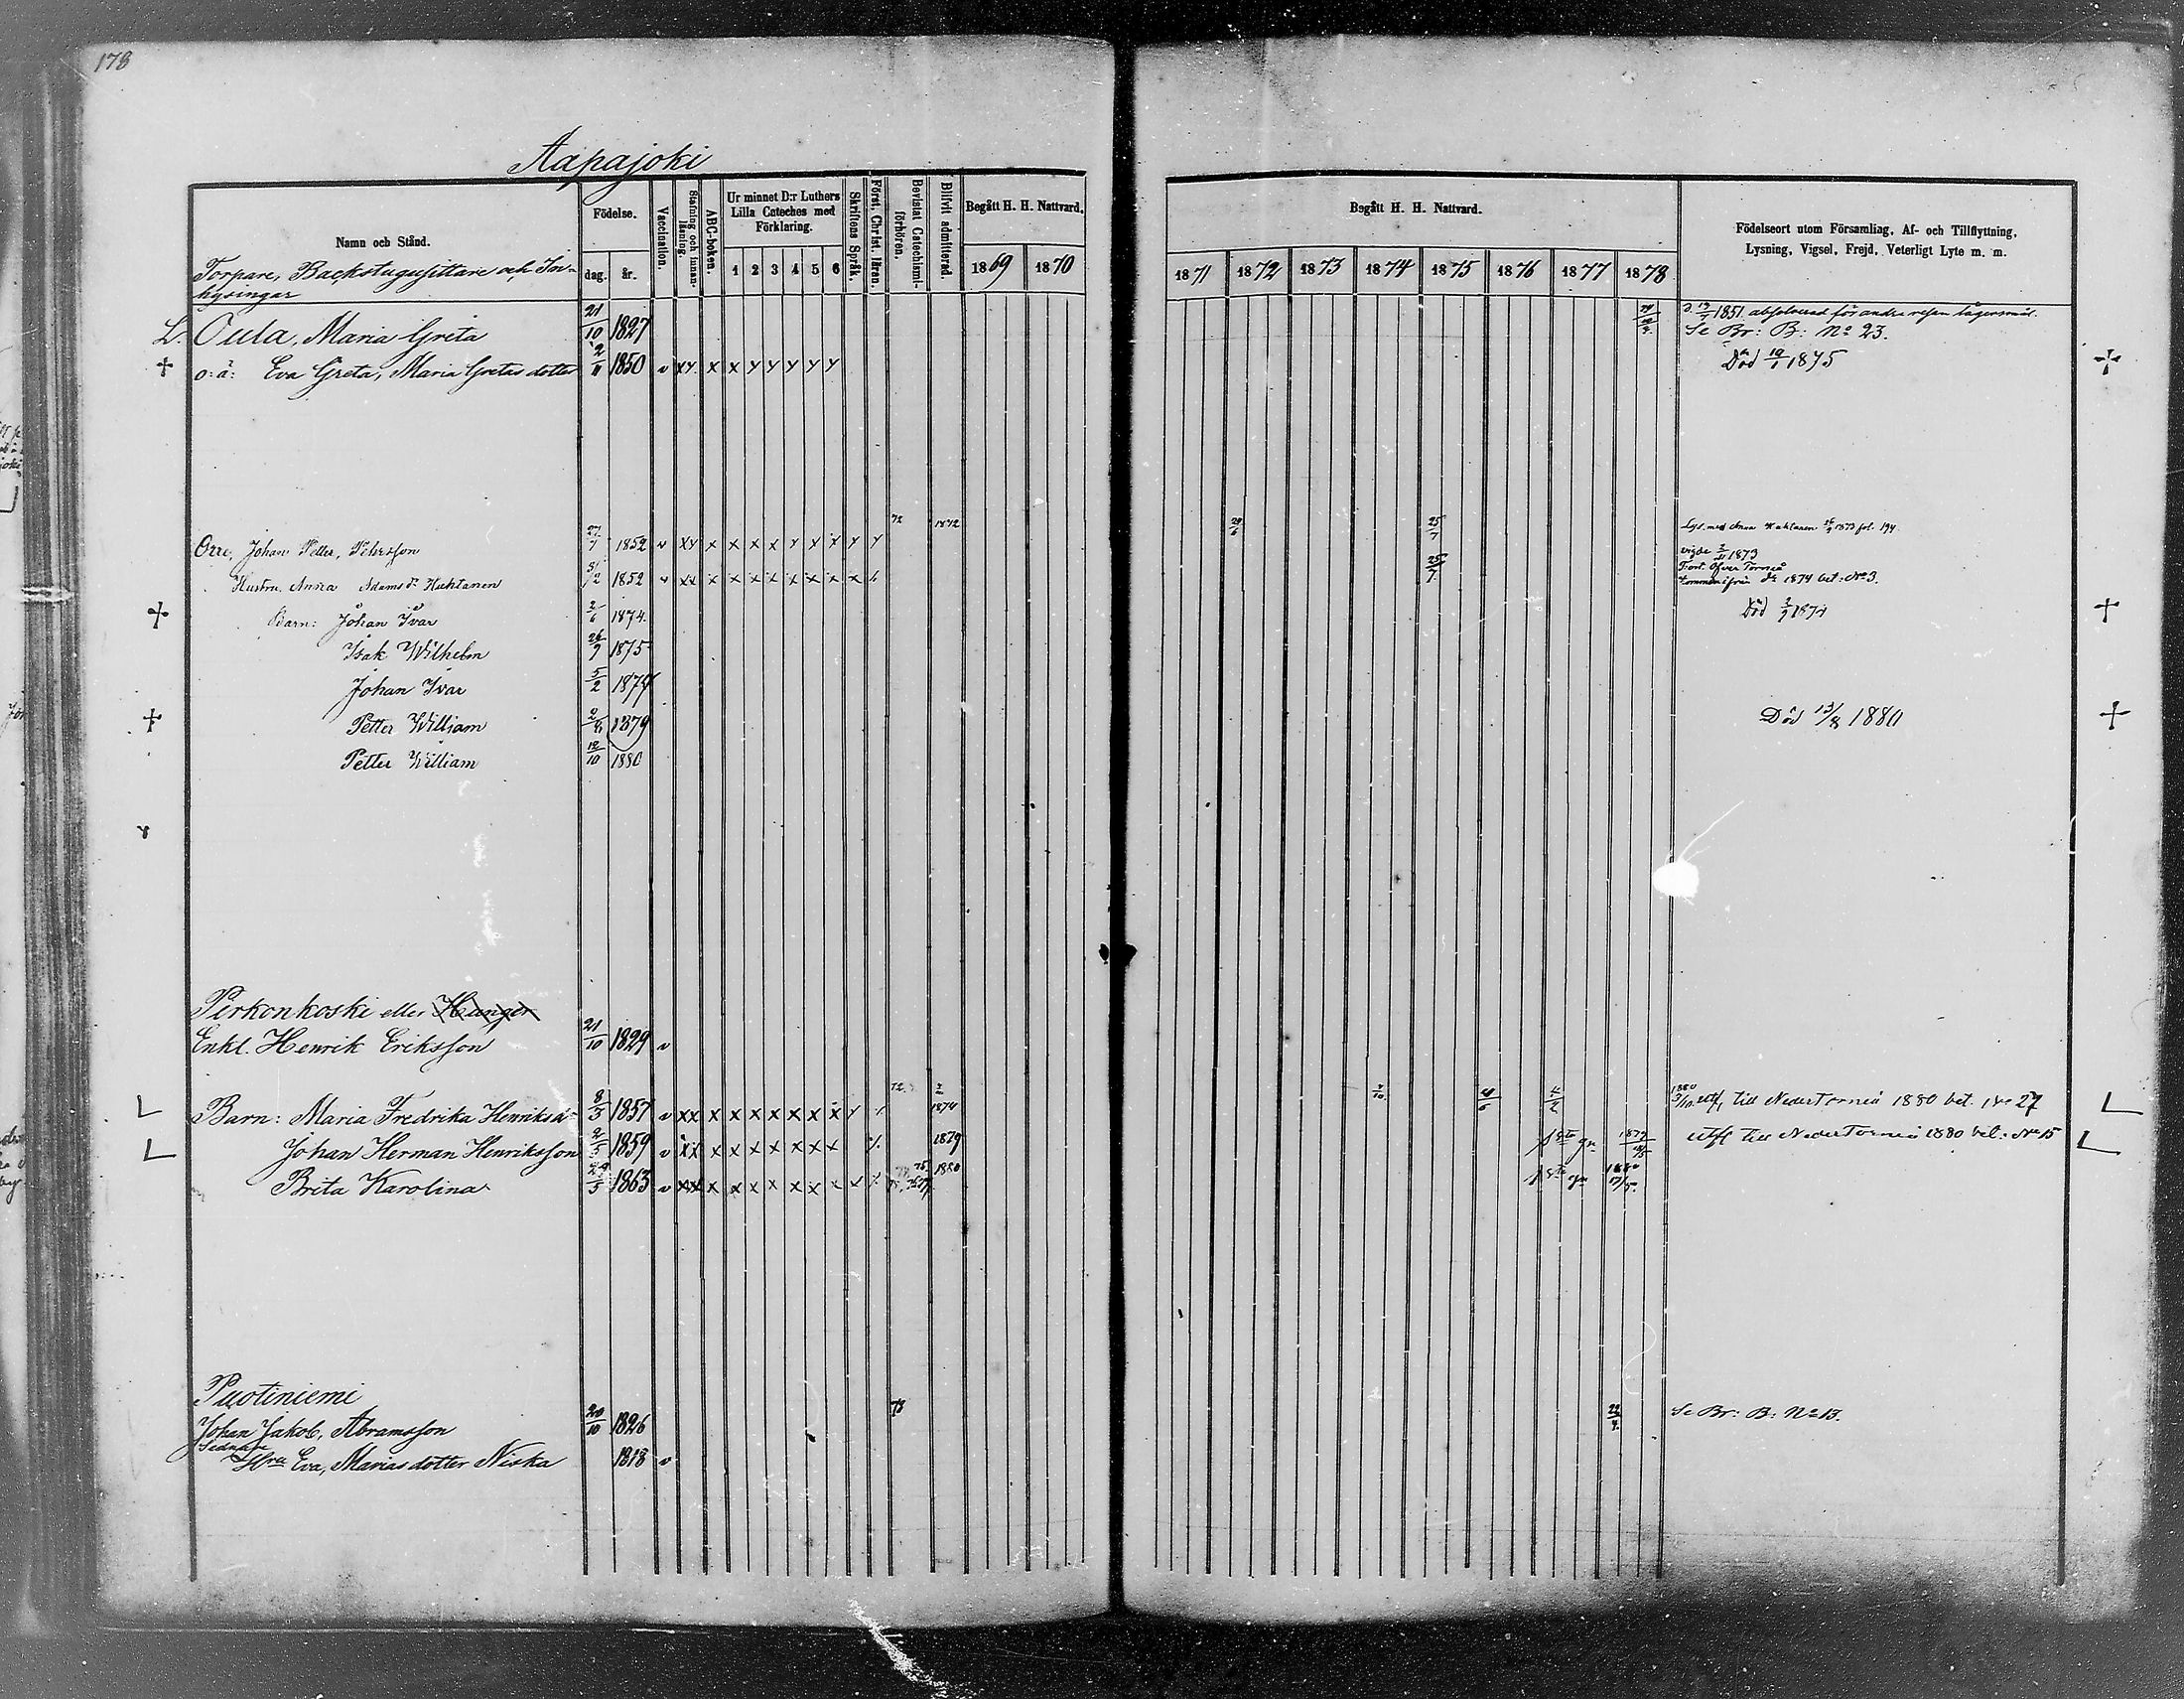 178
Aapajoki
Namn och Stånd.
Födelse.
dag.
år.
Vaccination.
Stafning och innan-läsning.
ABC-boken.
Ur minnet D:r Luthers Lilla Cateches med Förklaring.
1 2 3 4 5 6
Skriftens Språk.
Först. Christ. läran.
Bevistat Catechismi-förhören.
Blifvit admitterad.
Begått H. H. Nattvard.
1869 1870
Begått H. H. Nattvard.
1871 1872 1873 1874 1875 1876 1877 1878
Födelseort utom Församling, Af- och Tillflyttning,
Lysning, Vigsel, Frejd, Veterligt Lyte m. m.
Torpare, Backstugusittare och In-
hysingar
L. Oula, Maria Greta 21/10 1827 1851 absolverad för andra resan lägersmål.
Se Br: B: No 23.
o: ä: Eva Greta, Maria Gretas dotter 2/11 1850 v xy x x y y y y y Död 1875
72 1872
Orre, Johan Petter, Petersson 27/7 1852 v 25/7 Lys. med Anna Huhtanen 1873 fol. 194.
vigde 1873
Hustru Anna Adams dr Huhtanen 1852 v xx x x x x x x x x 25/7 Fört. Öfver Torneå
kommen ifrån 1874 bet: No 3.
Barn: Johan Ivar 2/6 1874. Död 1874
Isak Wilhelm 26/9 1875
Johan Ivar 5/2 1877
Petter William 1879 Död 13/8 1880
Petter William 12/10 1880
Pirkonkoski eller Hanger
Enkl. Henrik Eriksson 21/10 1829 v
Barn: Maria Fredrika Henriksdr 8/5 1857 v xx x x x x x x x y 72. 1874 1880 utfl. till Neder Torneå 1880 bet. No 27
Johan Herman Henriksson 2/5 1859 v xx x x x x x x x 1879 1sta gn 1879 utfl. till Neder Torneå 1880 bet: No 15
Brita Karolina 1863 v xx x x x x x x x 1880 1sta gn 1880
Puotiniemi
Johan Jakob, Abramsson 20/10 1826 73 22/4. Se Br: B: No 13.
Sednare
Hru Eva, Marias dotter Niska 1818 v